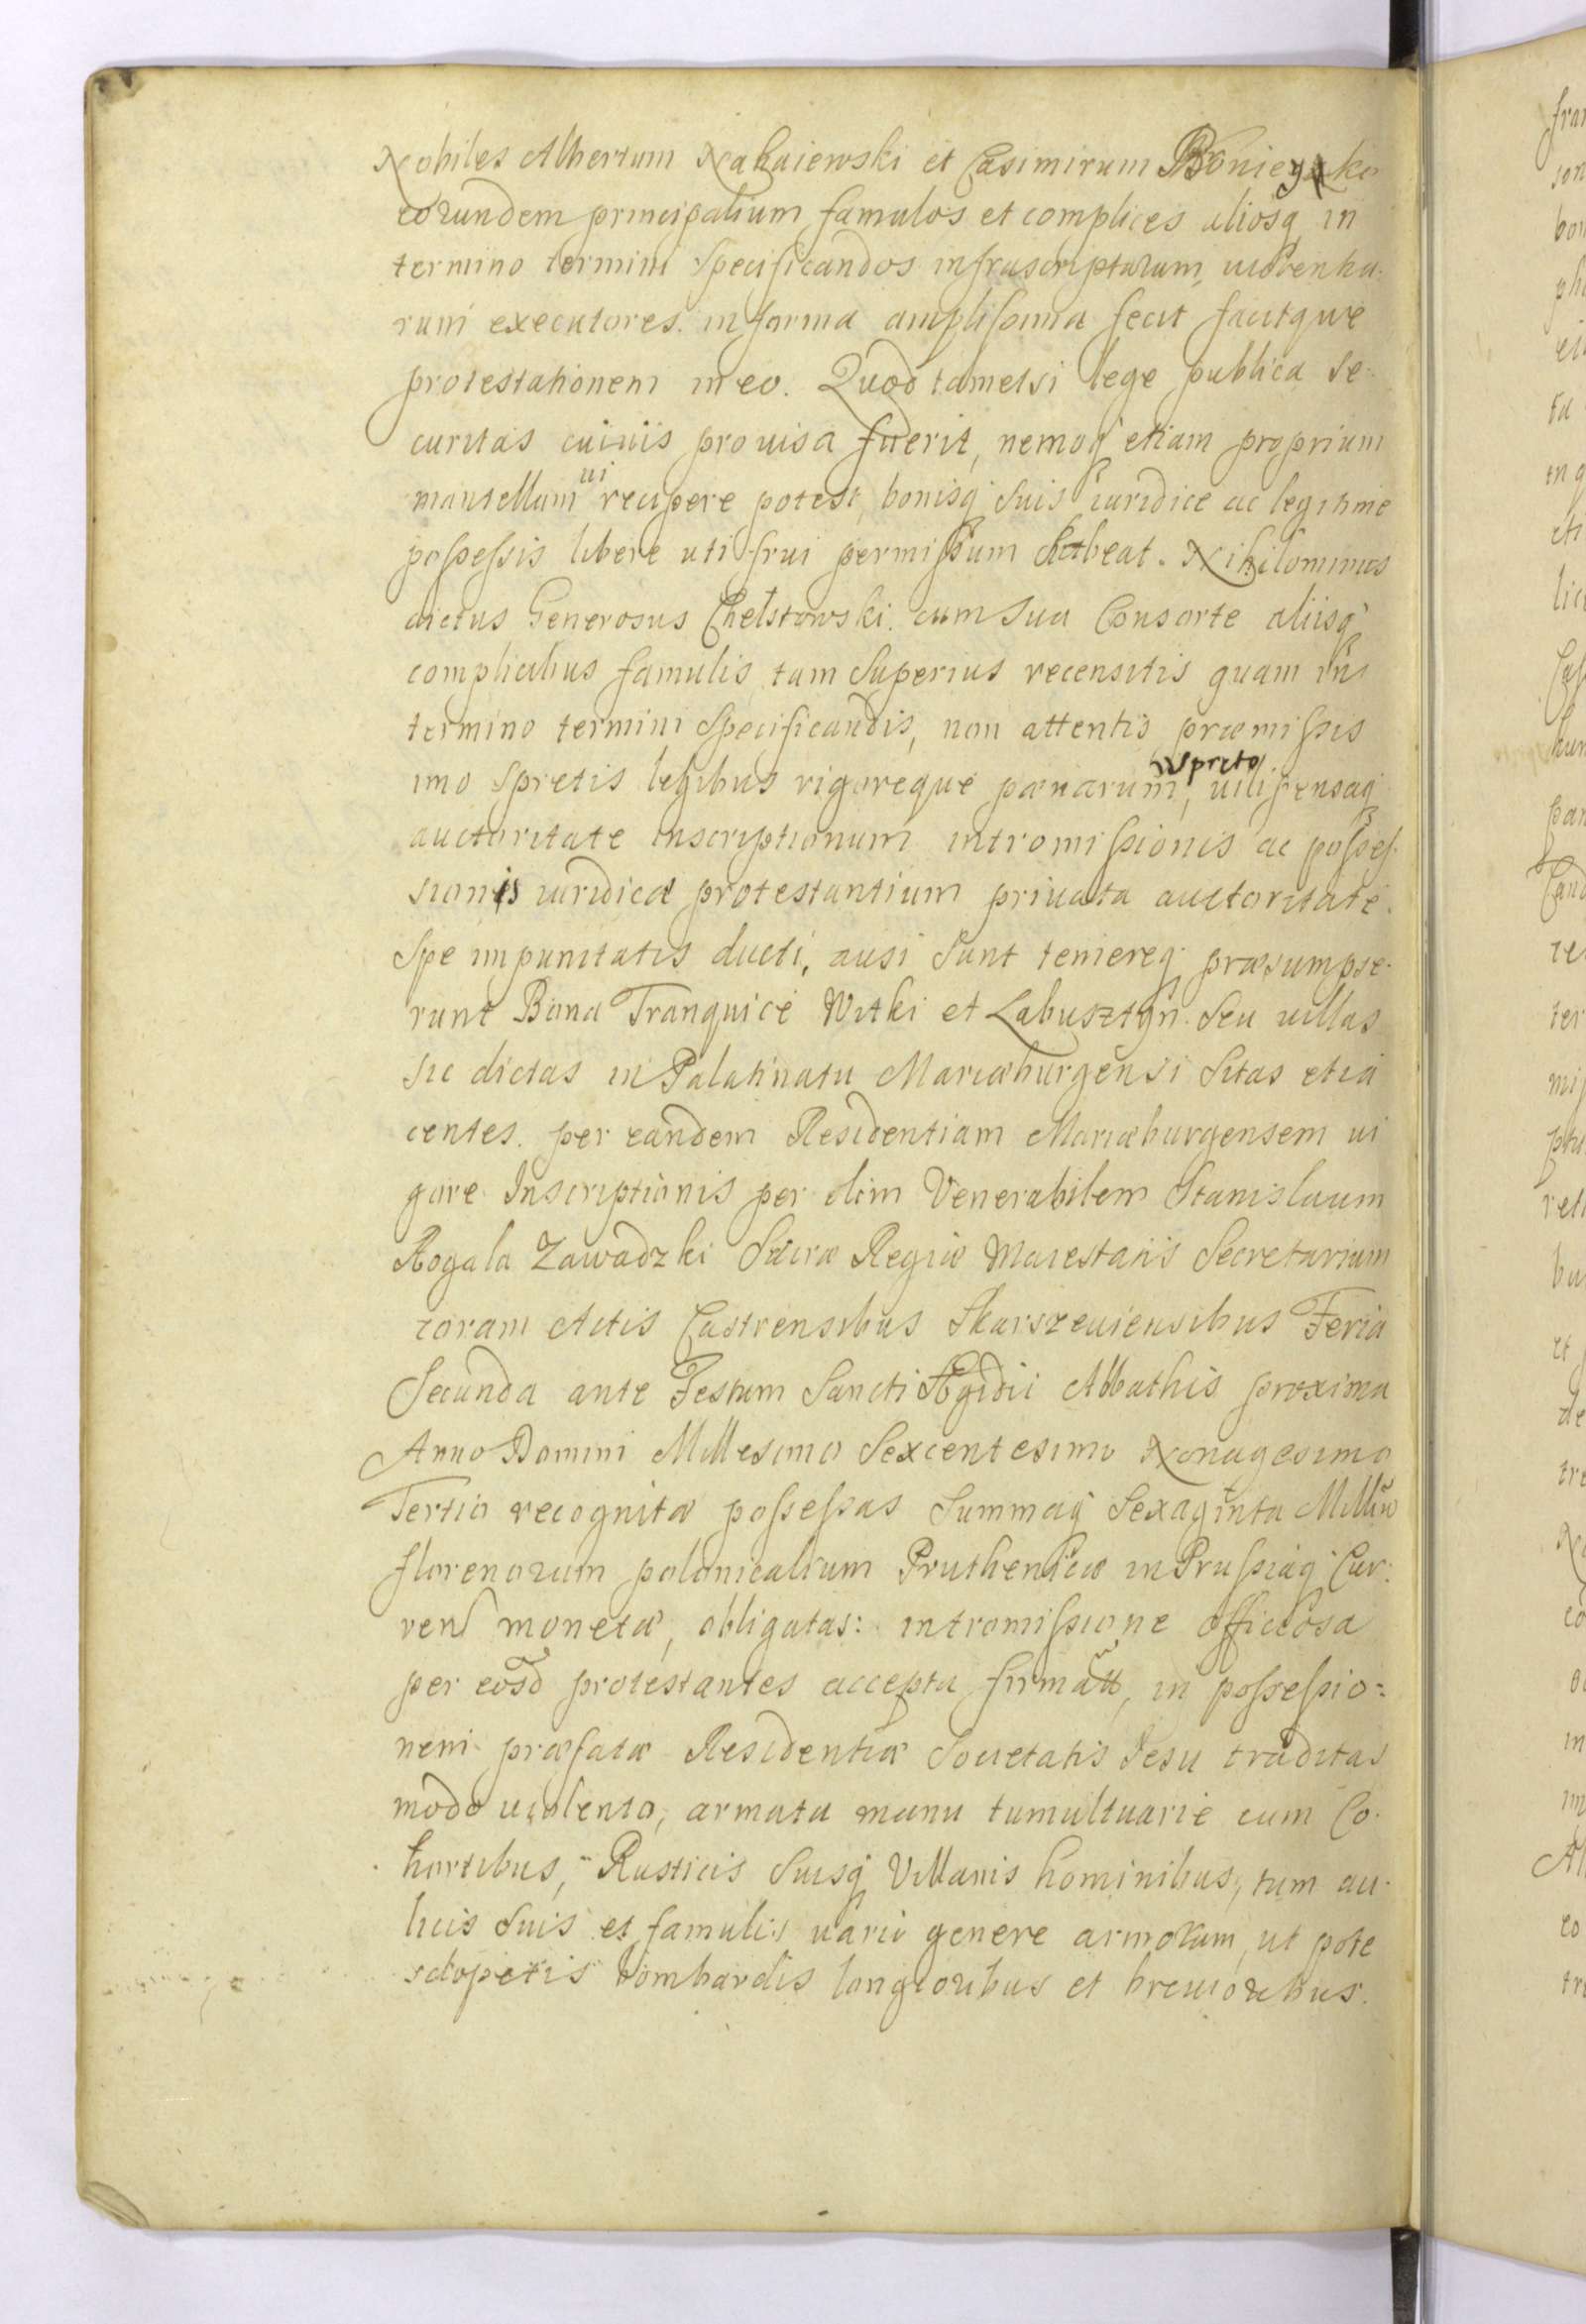 Nobiles Albertum Nakaiewski et Casimirum Boniey ki
eorundem principalium famulos et complices aliosq in
termino termini specificandos infrascriptarum violentia-
rum executores. in forma amplissima fecit facitque
protestationem in eo. Quod tametsi lege publica se-
curitas cuiuis prouisa fuerit, nemoq etiam proprium
mantellum ui recipere potest, bonisq suis iuridice ac legitime
possessis libere uti frui permissum habeat. Nihilominus
dictus Generosus Chelstowski. cum sua Consorte aliisq
complicibus famulis tam superius recensitis quam in
termino termini specificandis, non attentis præmissis
imo spretis legibus rigoreque pœnarum spreto, uilipensaq
auctoritate inscriptionum intromissionis ac posses-
sionis iuridicæ protestantium priuata auctoritate.
Spe impunitatis ducti, ausi sunt temereq præsumpse-
runt Bona Tranquice Witki et Labusztyn. seu uillas
sic dictas in Palatinatu Mariæburgensi sitas et ia
centes. per eandem Residentiam Mariæburgensem ui
gore Inscriptionis per olim Venerabilem Stanislaum
Rogala Zawadzki Sacræ Regiæ Maiestatis Secretarium
coram Actis Castrensibus Skarszeuiensibus Feria
Secunda ante Festum Sancti Ægidii Abbathis proxima
Anno Domini Millesimo Sexcentesimo Nonagesimo
Tertio recognitæ possessas Summaq Sexaginta Milliū
florenorum polonicalium Pruthenicæ in Prussiaq Cur-
ren monetæ, obligatas: intromissione officiosa
per eosd protestantes accepta firma, in possessio=
nem præfatæ Residentiæ Societatis Jesu traditas
modo uiolento, armata manu tumultuarie cum Co-
hortibus, Rusticis suisq Villanis hominibus, tum au-
licis suis et famulis uario genere armorum, ut pote
sclopetis bombardis longioribus et breuioribus.